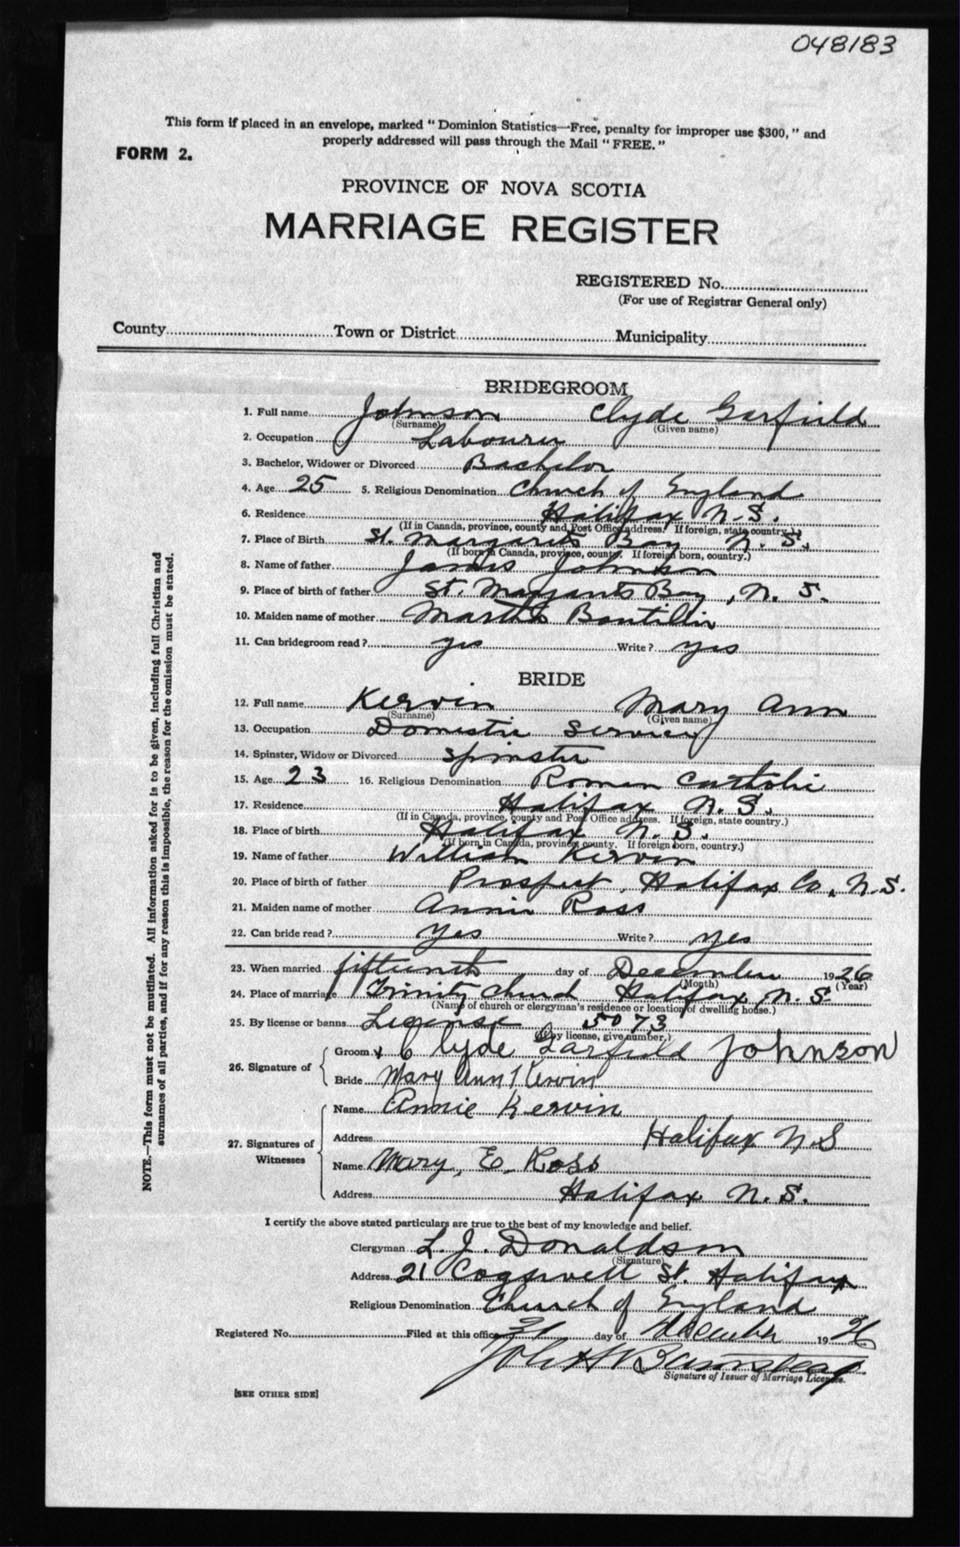 048183
This form if placed in an envelope, marked "Dominion Statistics—Free, penalty for improper use $300," and
properly addressed will pass through the Mail "FREE."
FORM 2.
PROVINCE OF NOVA SCOTIA
MARRIAGE REGISTER
REGISTERED No.
(For use of Registrar General only)
County Town or District Municipality
BRIDEGROOM
1. Full name Johnson Clyde Garfield
(Surname) (Given name)
2. Occupation Labourer
3. Bachelor, Widower or Divorced Bachelor
4. Age 25 5. Religious Denomination Church of England
6. Residence Halifax N.S.
(If in Canada, province, county and Post Office address. If foreign, state country.)
7. Place of Birth St. Margarets Bay N.S.
(If born in Canada, province, county. If foreign born, country.)
8. Name of father James Johnson
9. Place of birth of father St. Margarets Bay, N.S.
10. Maiden name of mother Martha Boutilier
11. Can bridegroom read? yes Write? yes
BRIDE
12. Full name Kervin Mary Ann
(Surname) (Given name)
13. Occupation Domestic Service
14. Spinster, Widow or Divorced Spinster
15. Age 23 16. Religious Denomination Roman Catholic
17. Residence Halifax N.S.
(If in Canada, province, county and Post Office address. If foreign, state country.)
18. Place of birth Halifax N.S.
(If born in Canada, province, county. If foreign born, country.)
19. Name of father William Kervin
20. Place of birth of father Prospect, Halifax Co, N.S.
21. Maiden name of mother Annie Ross
22. Can bride read? yes Write? yes
23. When married fifteenth day of December 1926
(Month) (Year)
24. Place of marriage Trinity Church Halifax N.S.
(Name of church or clergyman's residence or location of dwelling house.)
25. By license or banns License 5073
(If by license, give number.)
26. Signature of
Groom x Clyde Garfield Johnson
Bride Mary Ann Kervin
27. Signatures of Witnesses
Name Annie Kervin
Address Halifax N.S
Name Mary, E. Ross
Address Halifax N.S.
I certify the above stated particulars are true to the best of my knowledge and belief.
Clergyman L. J. Donaldson
(Signature)
Address 21 Cogswell St. Halifax
Religious Denomination Church of England
Registered No. Filed at this office 31 day of December 1926
Signature of Issuer of Marriage Licenses.
[SEE OTHER SIDE]
NOTE.—This form must not be mutilated. All information asked for is to be given, including full Christian and
surnames of all parties, and if for any reason this is impossible, the reason for the omission must be stated.